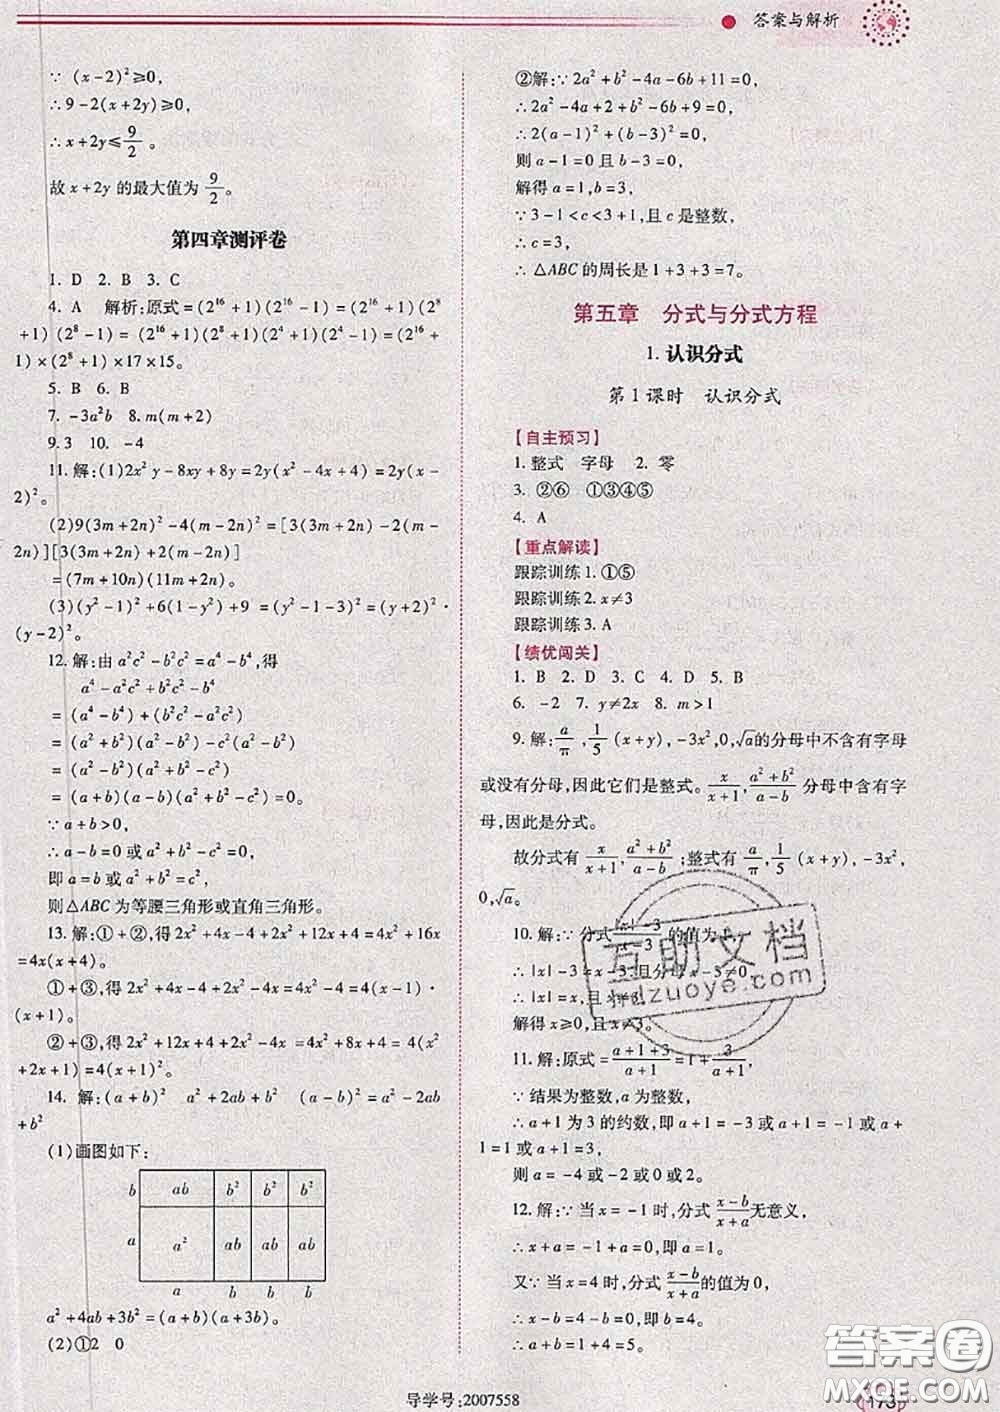 答案与解析
∵ (x-2)²≥0,
∴9-2(x+2y)≥0,
∴x+2y≤9/2。
故 x+2y 的最大值为 9/2。
第四章测评卷
1. D 2. B 3. C
4. A 解析:原式=(2¹⁶+1)(2¹⁶-1)=(2¹⁶+1)(2⁸
+1)(2⁸-1)= (2¹⁶+1)(2⁸+1)(2⁴+1)(2⁴-1)=(2¹⁶+
1)×(2⁸+1)×17×15。
5. B 6. B
7. -3a²b 8. m(m+2)
9. 3 10. -4
11. 解:(1)2x²y-8xy+8y=2y(x²-4x+4)=2y(x-
2)²。
(2)9(3m+2n)²-4(m-2n)²=[3(3m+2n)-2(m-
2n)][3(3m+2n)+2(m-2n)]
=(7m+10n)(11m+2n)。
(3)(y²-1)²+6(1-y²)+9 =(y²-4)²=(y+2)²·
(y-2)²。
12. 解:由 a²c²-b²c²=a⁴-b⁴,得
a⁴-a²c²+b²c²-b⁴
=(a⁴-b⁴)+(b²c²-a²c²)
=(a²+b²)(a²-b²)-c²(a²-b²)
=(a+b)(a-b)(a²+b²-c²)=0。
∵a+b>0,
∴a-b=0 或 a²+b²-c²=0,
即 a=b 或 a²+b²=c²,
则△ABC 为等腰三角形或直角三角形。
13. 解:①+②,得 2x²+4x-4+2x²+12x+4=4x²+16x
=4x(x+4)。
①+③,得 2x²+4x-4+2x²-4x=4x²-4=4(x-1)·
(x+1)。
②+③,得 2x²+12x+4+2x²-4x=4x²+8x+4=4(x²
+2x+1)=4(x+1)²。
14. 解:(a+b)² a²+2ab+b² (a-b)²=a²-2ab
+b²
(1)画图如下:
b ab b² b² b²
a a² ab ab ab
a b b b
a²+4ab+3b²=(a+b)(a+3b)。
(2)①2 0
②解:∵2a²+b²-4a-6b+11=0,
∴2a²-4a+2+b²-6b+9=0,
∴2(a-1)²+(b-3)²=0,
则 a-1=0 且 b-3=0,
解得 a=1,b=3,
∵3-1<c<3+1,且 c 是整数,
∴c=3,
∴△ABC 的周长是 1+3+3=7。
第五章 分式与分式方程
1. 认识分式
第 1 课时 认识分式
【自主预习】
1. 整式 字母 2. 零
3. ②⑥ ①③④⑤
4. A
【重点解读】
跟踪训练 1. ①⑤
跟踪训练 2. x≠3
跟踪训练 3. A
【绩优闯关】
1. B 2. D 3. C 4. D 5. B
6. -2 7. y≠2x 8. m>1
9. 解:a/π,1/5(x+y),-3x²,0,√a的分母中不含有字母
或没有分母,因此它们是整式。x/(x+1),(a²+b²)/(a-b) 分母中含有字
母,因此是分式。
故分式有 x/(x+1),(a²+b²)/(a-b);整式有 a/π,1/5(x+y),-3x²,
0,√a。
10. 解:∵分式(|x|-3)/(x-3)的值为1,
∴|x|-3=x-3且分母x-3≠0,
∴|x|=x,且 x≠3。
解得 x≥0,且 x≠3。
11. 解:原式=(a+1+3)/(a+1)=1+3/(a+1),
∵结果为整数,a 为整数,
∴a+1 为 3 的约数,即 a+1=-3 或 a+1=-1 或 a+
1=1 或 a+1=3,
则 a=-4 或-2 或 0 或 2。
12. 解:∵当 x=-1 时,分式(x-b)/(x+a)无意义,
∴x+a=-1+a=0,即 a=1。
又∵当 x=4 时,分式(x-b)/(x+a)的值为 0,
∴x-b=4-b=0,即 b=4。
∴a+b=1+4=5。
互助文档
hdzuoye.com
导学号:2007558
173
答案圈
MXQE.COM